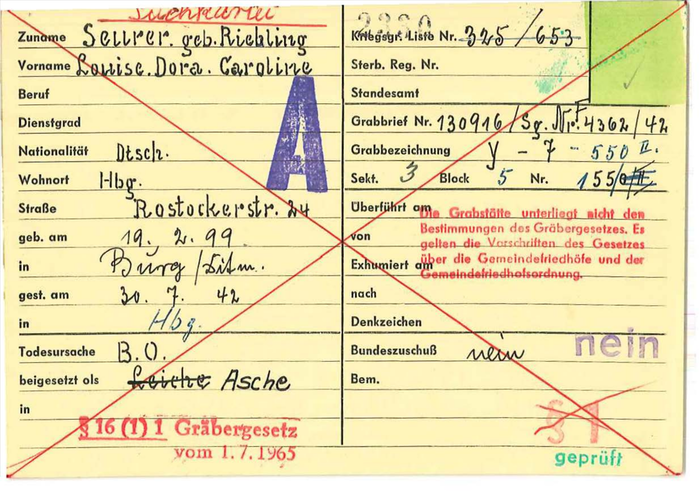 Suchkartei
Zuname Seurer. geb. Riehling
Vorname Louise. Dora. Caroline
Beruf
Dienstgrad
Nationalität Dtsch.
Wohnort Hbg.
Straße Rostockerstr. 24
geb. am 19. 2. 99.
in Burg/Ditm.
gest. am 30. 7. 42
in Hbg.
Todesursache B.O.
beigesetzt als Leiche Asche
in
§ 16 (1) 1 Gräbergesetz
vom 1. 7. 1965
A
Kriegsgr. Liste Nr. 325/653
Sterb. Reg. Nr.
Standesamt
Grabbrief Nr. 130916/Sg. Nr. F 4362/42
Grabbezeichnung Y - 7 - 550 II.
Sekt. 3 Block 5 Nr. 155
Überführt am
von
Exhumiert am
nach
Denkzeichen
Bundeszuschuß nein
Bem.
Die Grabstätte unterliegt nicht den
Bestimmungen des Gräbergesetzes. Es
gelten die Vorschriften des Gesetzes
über die Gemeindefriedhöfe und der
Gemeindefriedhofsordnung.
nein
§ 1
geprüft